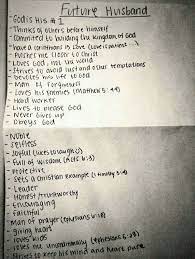 Future Husband
- God is His #1
- Thinks of others before himself
- Committed to building the Kingdom of God
- have a Corinthians 13 love (Love is patient...)
- Pushes me closer to Christ
- Loves God, not the world
- Strives to avoid lust and other temptations
- Devotes his life to God
- Man of forgiveness
- Loves his enemies (Matthew 5:44)
- Hard worker
- Lives to please God
- Never Gives up
- Obeys God
- Noble
- Selfless
- Joyful (likes to laugh)
- Full of wisdom (Acts 6:3)
- Protective
- Sets a Christian example (1 Timothy
- Leader
- Honest/trustworthy
- Encouraging
- Faithful
- Man of prayer (Ephesians 6:18)
- giving heart
- loves kids
- loves me unconditionally (Ephesians
- strives to keep his mind and heart pure